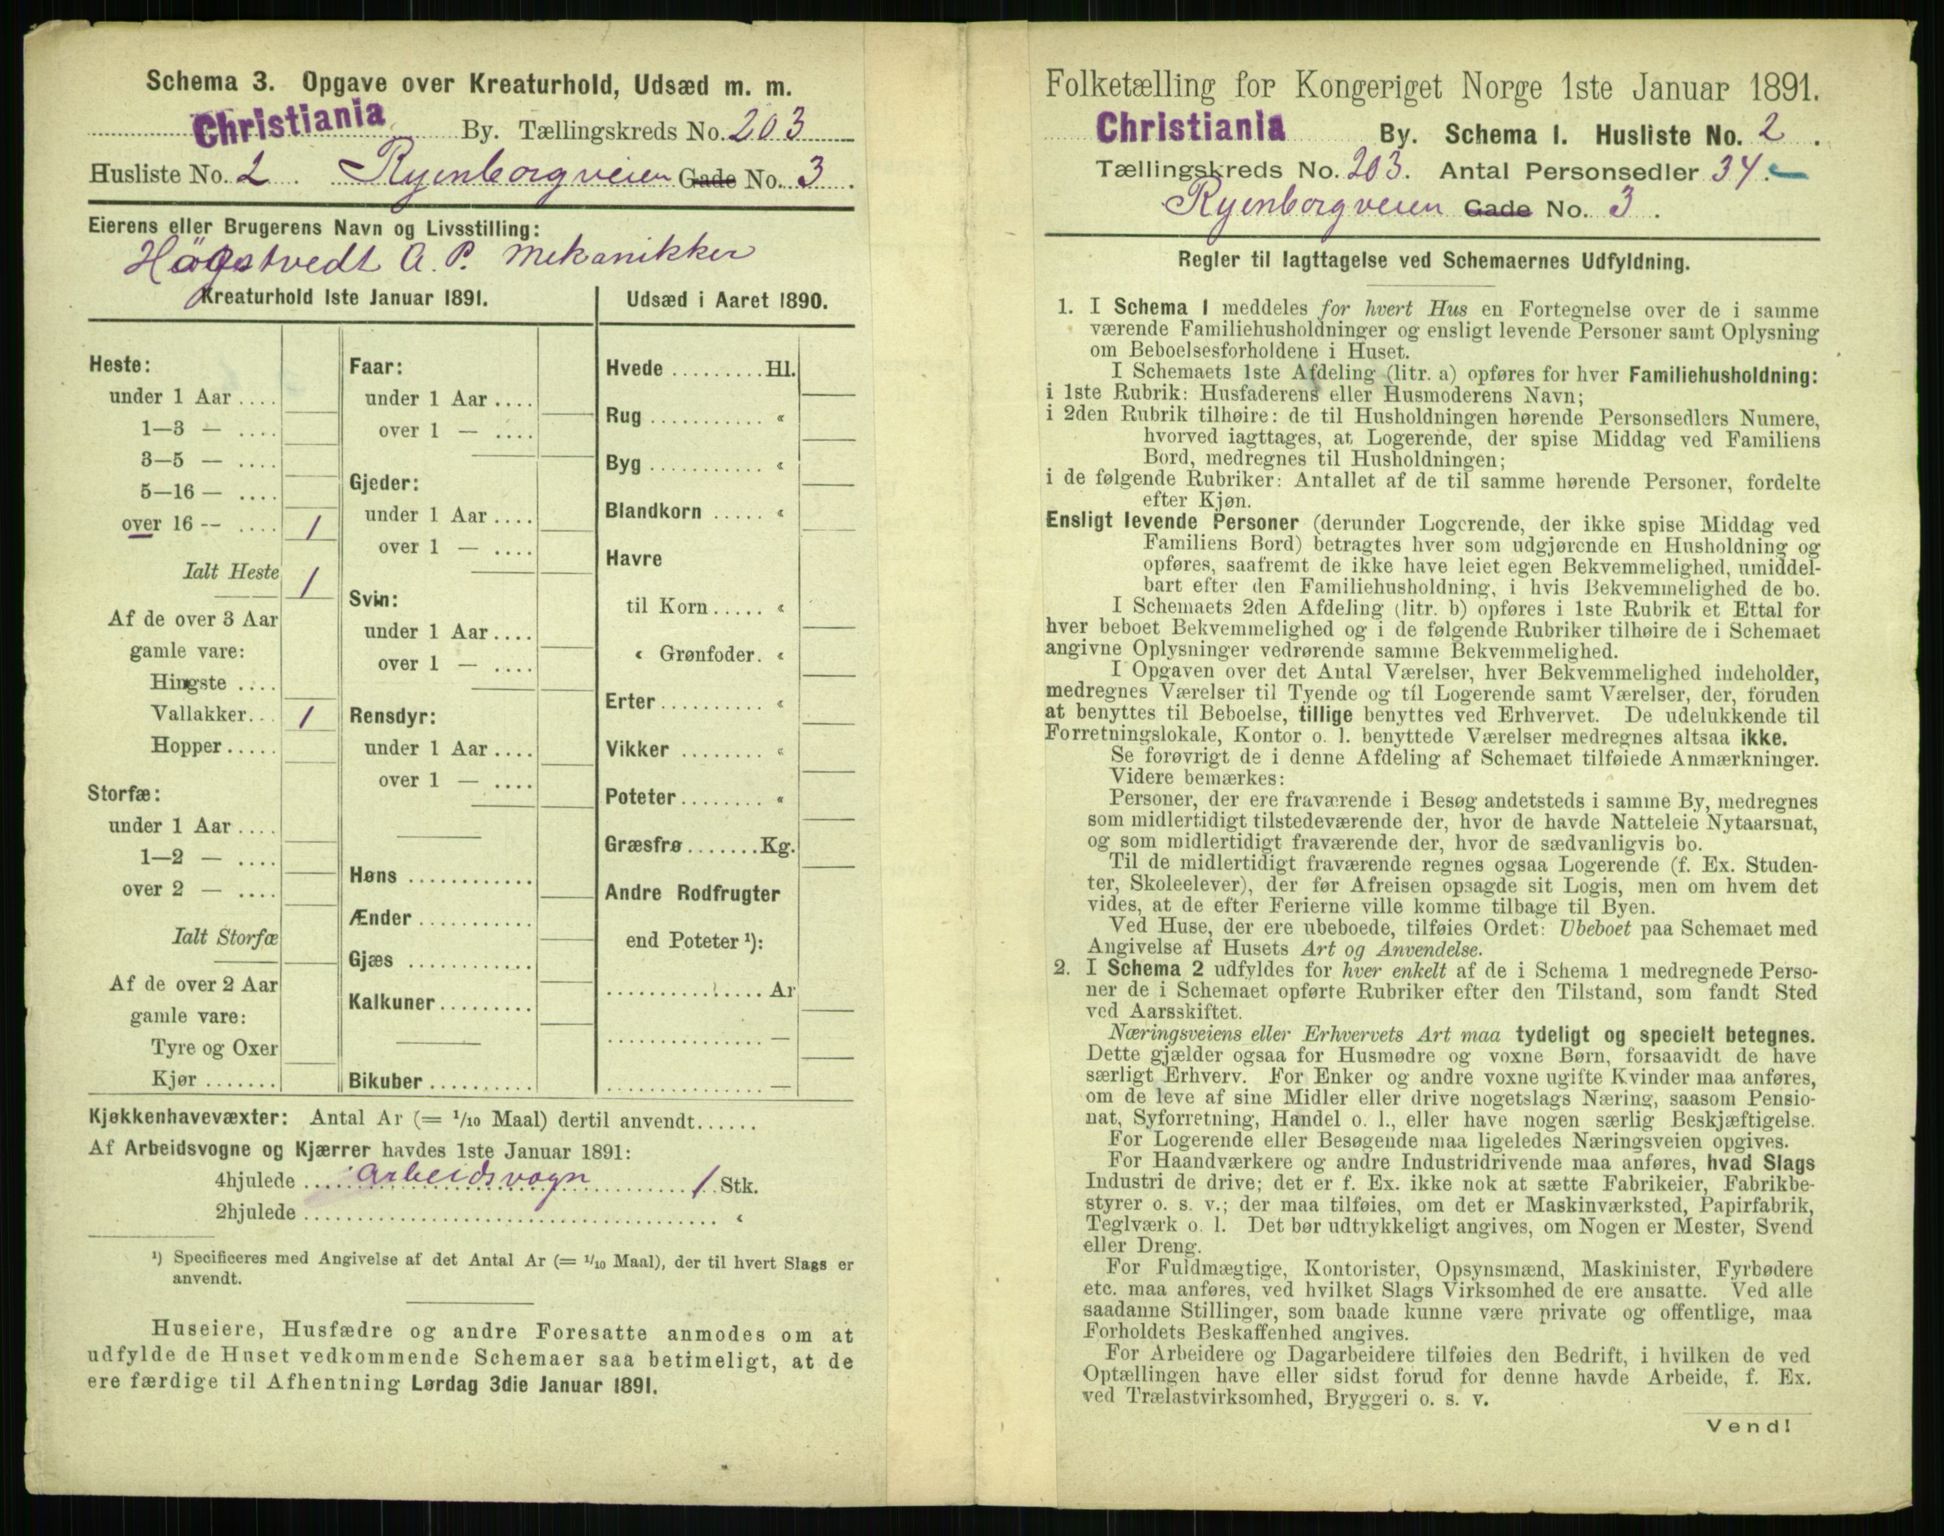 Schema 3. Opgave over Kreaturhold, Udsæd m. m.
Christiania By. Tællingskreds No. 203
Husliste No. 2. Ryenborgveien Gade No. 3.
Eierens eller Brugerens Navn og Livsstilling:
Högstvedt A. P. Mekanikker
Kreaturhold 1ste Januar 1891.
Udsæd i Aaret 1890.
Heste:
under 1 Aar ....
1—3 — ....
3—5 — ....
5—16 — ....
over 16 -- .... 1
Ialt Heste 1
Af de over 3 Aar
gamle vare:
Hingste ....
Vallakker... 1
Hopper.....
Storfæ:
under 1 Aar ....
1—2 — ....
over 2 — ....
Ialt Storfæ
Af de over 2 Aar
gamle vare:
Tyre og Oxer
Kjør .......
Faar:
under 1 Aar ....
over 1 — ....
Gjeder:
under 1 Aar ....
over 1 — ....
Svin:
under 1 Aar ....
over 1 — ....
Rensdyr:
under 1 Aar ....
over 1 — ....
Høns ............
Ænder ...........
Gjæs ............
Kalkuner.........
Bikuber..........
Hvede .........Hl.
Rug ........... «
Byg ........... «
Blandkorn ..... «
Havre
til Korn..... «
« Grønfoder. «
Erter.......... «
Vikker ........ «
Poteter........ «
Græsfrø.......Kg.
Andre Rodfrugter
end Poteter ¹):
............... Ar
............... —
............... —
Kjøkkenhavevæxter: Antal Ar (= 1/10 Maal) dertil anvendt......
Af Arbeidsvogne og Kjærrer havdes 1ste Januar 1891:
4hjulede ... Arbeidsvogn ... 1 Stk.
2hjulede ........................................ «
¹) Specificeres med Angivelse af det Antal Ar (= 1/10 Maal), der til hvert Slags er
anvendt.
Huseiere, Husfædre og andre Foresatte anmodes om at
udfylde de Huset vedkommende Schemaer saa betimeligt, at de
ere færdige til Afhentning Lørdag 3die Januar 1891.
Folketælling for Kongeriget Norge 1ste Januar 1891.
Christiania By. Schema I. Husliste No. 2.
Tællingskreds No. 203. Antal Personsedler 34.
Ryenborgveien Gade No. 3.
Regler til Iagttagelse ved Schemaernes Udfyldning.
1. I Schema 1 meddeles for hvert Hus en Fortegnelse over de i samme
værende Familiehusholdninger og ensligt levende Personer samt Oplysning
om Beboelsesforholdene i Huset.
I Schemaets 1ste Afdeling (litr. a) opføres for hver Familiehusholdning:
i 1ste Rubrik: Husfaderens eller Husmoderens Navn;
i 2den Rubrik tilhøire: de til Husholdningen hørende Personsedlers Numere,
hvorved iagttages, at Logerende, der spise Middag ved Familiens
Bord, medregnes til Husholdningen;
i de følgende Rubriker: Antallet af de til samme hørende Personer, fordelte
efter Kjøn.
Ensligt levende Personer (derunder Logerende, der ikke spise Middag ved
Familiens Bord) betragtes hver som udgjørende en Husholdning og
opføres, saafremt de ikke have leiet egen Bekvemmelighed, umiddel-
bart efter den Familiehusholdning, i hvis Bekvemmelighed de bo.
I Schemaets 2den Afdeling (litr. b) opføres i 1ste Rubrik et Ettal for
hver beboet Bekvemmelighed og i de følgende Rubriker tilhøire de i Schemaet
angivne Oplysninger vedrørende samme Bekvemmelighed.
I Opgaven over det Antal Værelser, hver Bekvemmelighed indeholder,
medregnes Værelser til Tyende og til Logerende samt Værelser, der, foruden
at benyttes til Beboelse, tillige benyttes ved Erhvervet. De udelukkende til
Forretningslokale, Kontor o. l. benyttede Værelser medregnes altsaa ikke.
Se forøvrigt de i denne Afdeling af Schemaet tilføiede Anmærkninger.
Videre bemærkes:
Personer, der ere fraværende i Besøg andetsteds i samme By, medregnes
som midlertidigt tilstedeværende der, hvor de havde Natteleie Nytaarsnat,
og som midlertidigt fraværende der, hvor de sædvanligvis bo.
Til de midlertidigt fraværende regnes ogsaa Logerende (f. Ex. Studen-
ter, Skoleelever), der før Afreisen opsagde sit Logis, men om hvem det
vides, at de efter Ferierne ville komme tilbage til Byen.
Ved Huse, der ere ubeboede, tilføies Ordet: Ubeboet paa Schemaet med
Angivelse af Husets Art og Anvendelse.
2. I Schema 2 udfyldes for hver enkelt af de i Schema 1 medregnede Perso-
ner de i Schemaet opførte Rubriker efter den Tilstand, som fandt Sted
ved Aarsskiftet.
Næringsveiens eller Erhvervets Art maa tydeligt og specielt betegnes.
Dette gjælder ogsaa for Husmødre og voxne Børn, forsaavidt de have
særligt Erhverv. For Enker og andre voxne ugifte Kvinder maa anføres,
om de leve af sine Midler eller drive nogetslags Næring, saasom Pensio-
nat, Syforretning, Handel o. l., eller have nogen særlig Beskjæftigelse.
For Logerende eller Besøgende maa ligeledes Næringsveien opgives.
For Haandværkere og andre Industridrivende maa anføres, hvad Slags
Industri de drive; det er f. Ex. ikke nok at sætte Fabrikeier, Fabrikbe-
styrer o. s. v.; der maa tilføies, om det er Maskinværksted, Papirfabrik,
Teglværk o. l. Det bør udtrykkeligt angives, om Nogen er Mester, Svend
eller Dreng.
For Fuldmægtige, Kontorister, Opsynsmænd, Maskinister, Fyrbødere
etc. maa anføres, ved hvilket Slags Virksomhed de ere ansatte. Ved alle
saadanne Stillinger, som baade kunne være private og offentlige, maa
Forholdets Beskaffenhed angives.
For Arbeidere og Dagarbeidere tilføies den Bedrift, i hvilken de ved
Optællingen have eller sidst forud for denne havde Arbeide, f. Ex.
ved Trælastvirksomhed, Bryggeri o. s. v.
Vend!